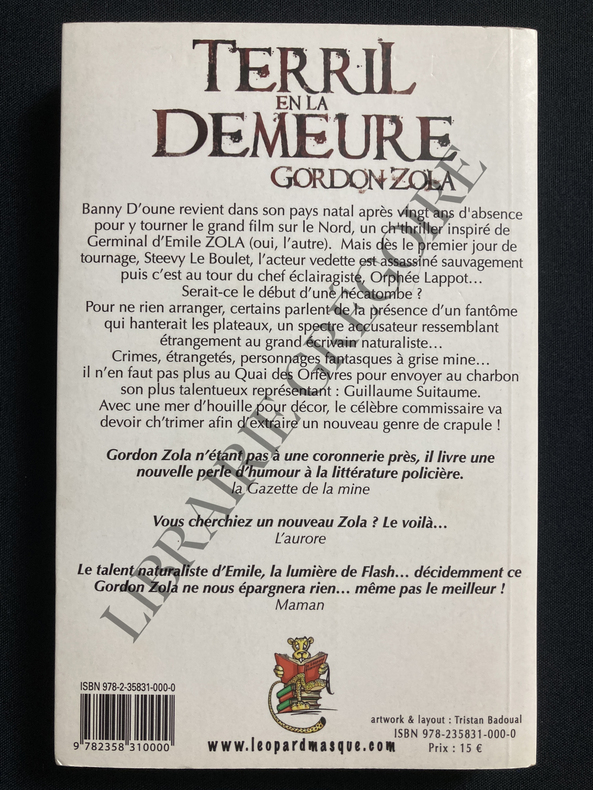 TERRIL
EN LA
DEMEURE
GORDON ZOLA
Banny D'oune revient dans son pays natal après vingt ans d'absence
pour y tourner le grand film sur le Nord, un ch'thriller inspiré de
Germinal d'Emile ZOLA (oui, l'autre). Mais dès le premier jour de
tournage, Steevy Le Boulet, l'acteur vedette est assassiné sauvagement
puis c'est au tour du chef éclairagiste, Orphée Lappot...
Serait-ce le début d'une hécatombe ?
Pour ne rien arranger, certains parlent de la présence d'un fantôme
qui hanterait les plateaux, un spectre accusateur ressemblant
étrangement au grand écrivain naturaliste...
Crimes, étrangetés, personnages fantasques à grise mine...
il n'en faut pas plus au Quai des Orfèvres pour envoyer au charbon
son plus talentueux représentant : Guillaume Suitaume.
Avec une mer d'houille pour décor, le célèbre commissaire va
devoir ch'trimer afin d'extraire un nouveau genre de crapule !
Gordon Zola n'étant pas à une coronnerie près, il livre une
nouvelle perle d'humour à la littérature policière.
la Gazette de la mine
Vous cherchiez un nouveau Zola ? Le voilà...
L'aurore
Le talent naturaliste d'Emile, la lumière de Flash... décidemment ce
Gordon Zola ne nous épargnera rien... même pas le meilleur !
Maman
LIBRAIRIE GREGOIRE
ISBN 978-2-35831-000-0
9 782358 310000
www.leopardmasque.com
artwork & layout : Tristan Badoual
ISBN 978-235831-000-0
Prix : 15 €